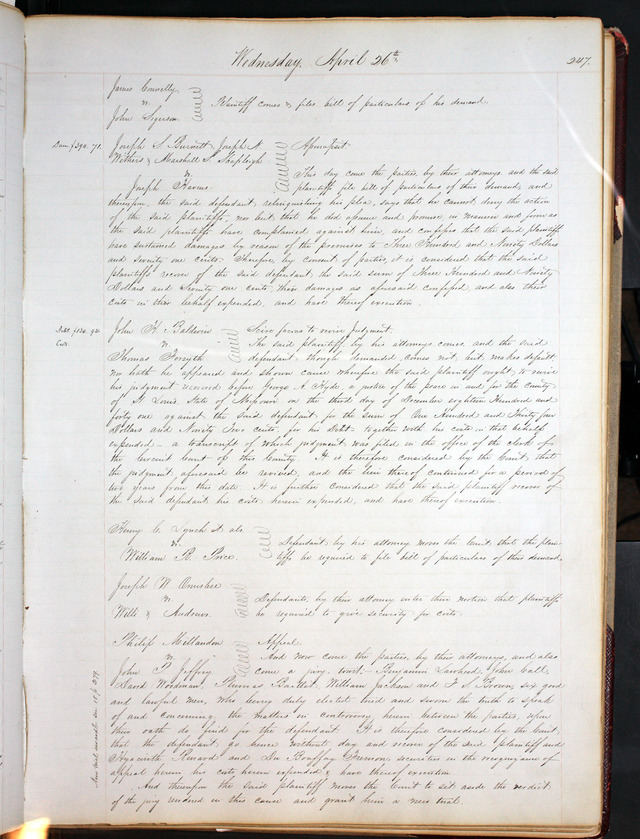 Wednesday, April 26th.
247.
James Connelly
vs.
Plaintiff comes & files bill of particulars of his demand
John Sigerson
Dam. $390. 71.
Joseph S. Burnett, Joseph N.
Assumpsit
Withers & Marshall S. Shapleigh
vs.
This day come the parties by their attorneys and the said
Joseph
plaintiffs file bill of particulars of their demand, and
thereupon, the said defendant, relinquishing his plea, says that he cannot deny the action
of the said plaintiffs, nor but that he did assume and promise in manner and form as
the said plaintiffs have complained against him, and confesses that the said plaintiffs
have sustained damages by reason of the premises to Three Hundred and Ninety Dollars
and seventy one cents. Therefore, by consent of parties, it is considered that the said
plaintiffs recover of the said defendant the said sum of Three Hundred and Ninety
Dollars and Seventy one cents, their damages as aforesaid confessed, and also their
costs in their behalf expended, and have thereof execution.
Debt $134. 92.
Costs.
John H. Baldwin
Scire facias to revive judgment.
vs.
The said plaintiff by his attorneys comes and the said
Thomas Forsyth
defendant, though demanded, comes not, but makes default,
nor hath he appeared and shown cause wherefore the said plaintiff ought to revive
his judgment recovered before George A. Hyde a justice of the peace in and for the county
of St Louis, State of Missouri on the third day of December eighteen Hundred and
forty one against the said defendant for the sum of One Hundred and Thirty four
Dollars and Ninety Two cents, for his Debt, together with his costs in that behalf
expended — a transcript of which judgment was filed in the office of the clerk of
the Circuit Court of this County. It is therefore considered by the Court, that
the judgment aforesaid be revived, and the lien thereof continued for a period of
two years from this date. It is further considered that the said plaintiff recover of
the said defendant his costs herein expended, and have thereof execution.
Henry C. Lynch et als
vs.
Defendant by his attorney moves the Court that the plain-
William R. Price
tiffs be required to file bill of particulars of their demand.
Joseph W. Ormsbee
vs.
Defendants, by their attorney enter their motion that plaintiff
Wells & Andrews
be required to give security for costs.
Philip Mellandon
Appeal.
vs.
And now come the parties, by their attorneys, and also
John P. Jeffrey
come a jury, towit: Benjamin Lawhead, John Call,
David Woodman, Thomas Bartlet, William Jackson and T. S. Brown, six good
and lawful men, who being duly elected tried and sworn the truth to speak
of and concerning the matters in controversy herein between the parties, upon
their oath do find for the defendant. It is therefore considered by the Court,
that the defendant go hence without day and recover of the said plaintiff and
Hyacinth Renard and securities in the recognizance of
appeal herein his costs herein expended & have thereof execution.
And thereupon the said plaintiff moves the Court to set aside the verdict
of the jury rendered in this cause and grant him a new trial.